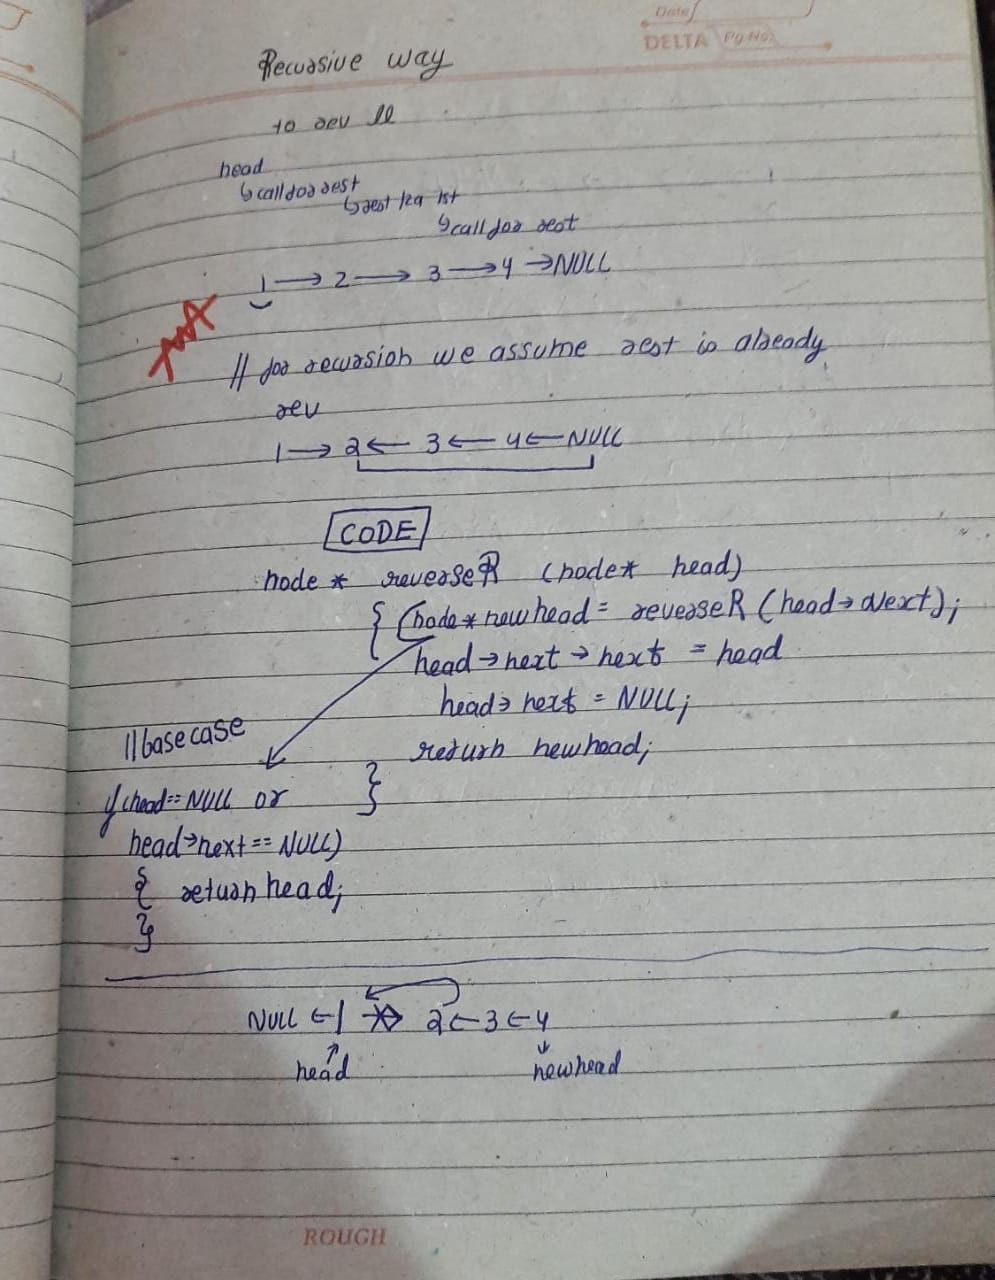 Date
DELTA Pg No:
Recursive way
to rev ll
head
↳ call for rest
↳ rest ka 1st
↳ call for rest
1 → 2 → 3 → 4 → NULL
// for recursion we assume rest is already
rev
1 → 2 ← 3 ← 4 ← NULL
CODE
node * reverseR (node* head)
{ node * newhead = reverseR (head → Next);
head → next → next = head
head → next = NULL;
return newhead;
}
// base case
if (head == NULL or
head → next == NULL)
{ return head;
}
NULL ← 1 → 2 ← 3 ← 4
head
newhead
ROUGH